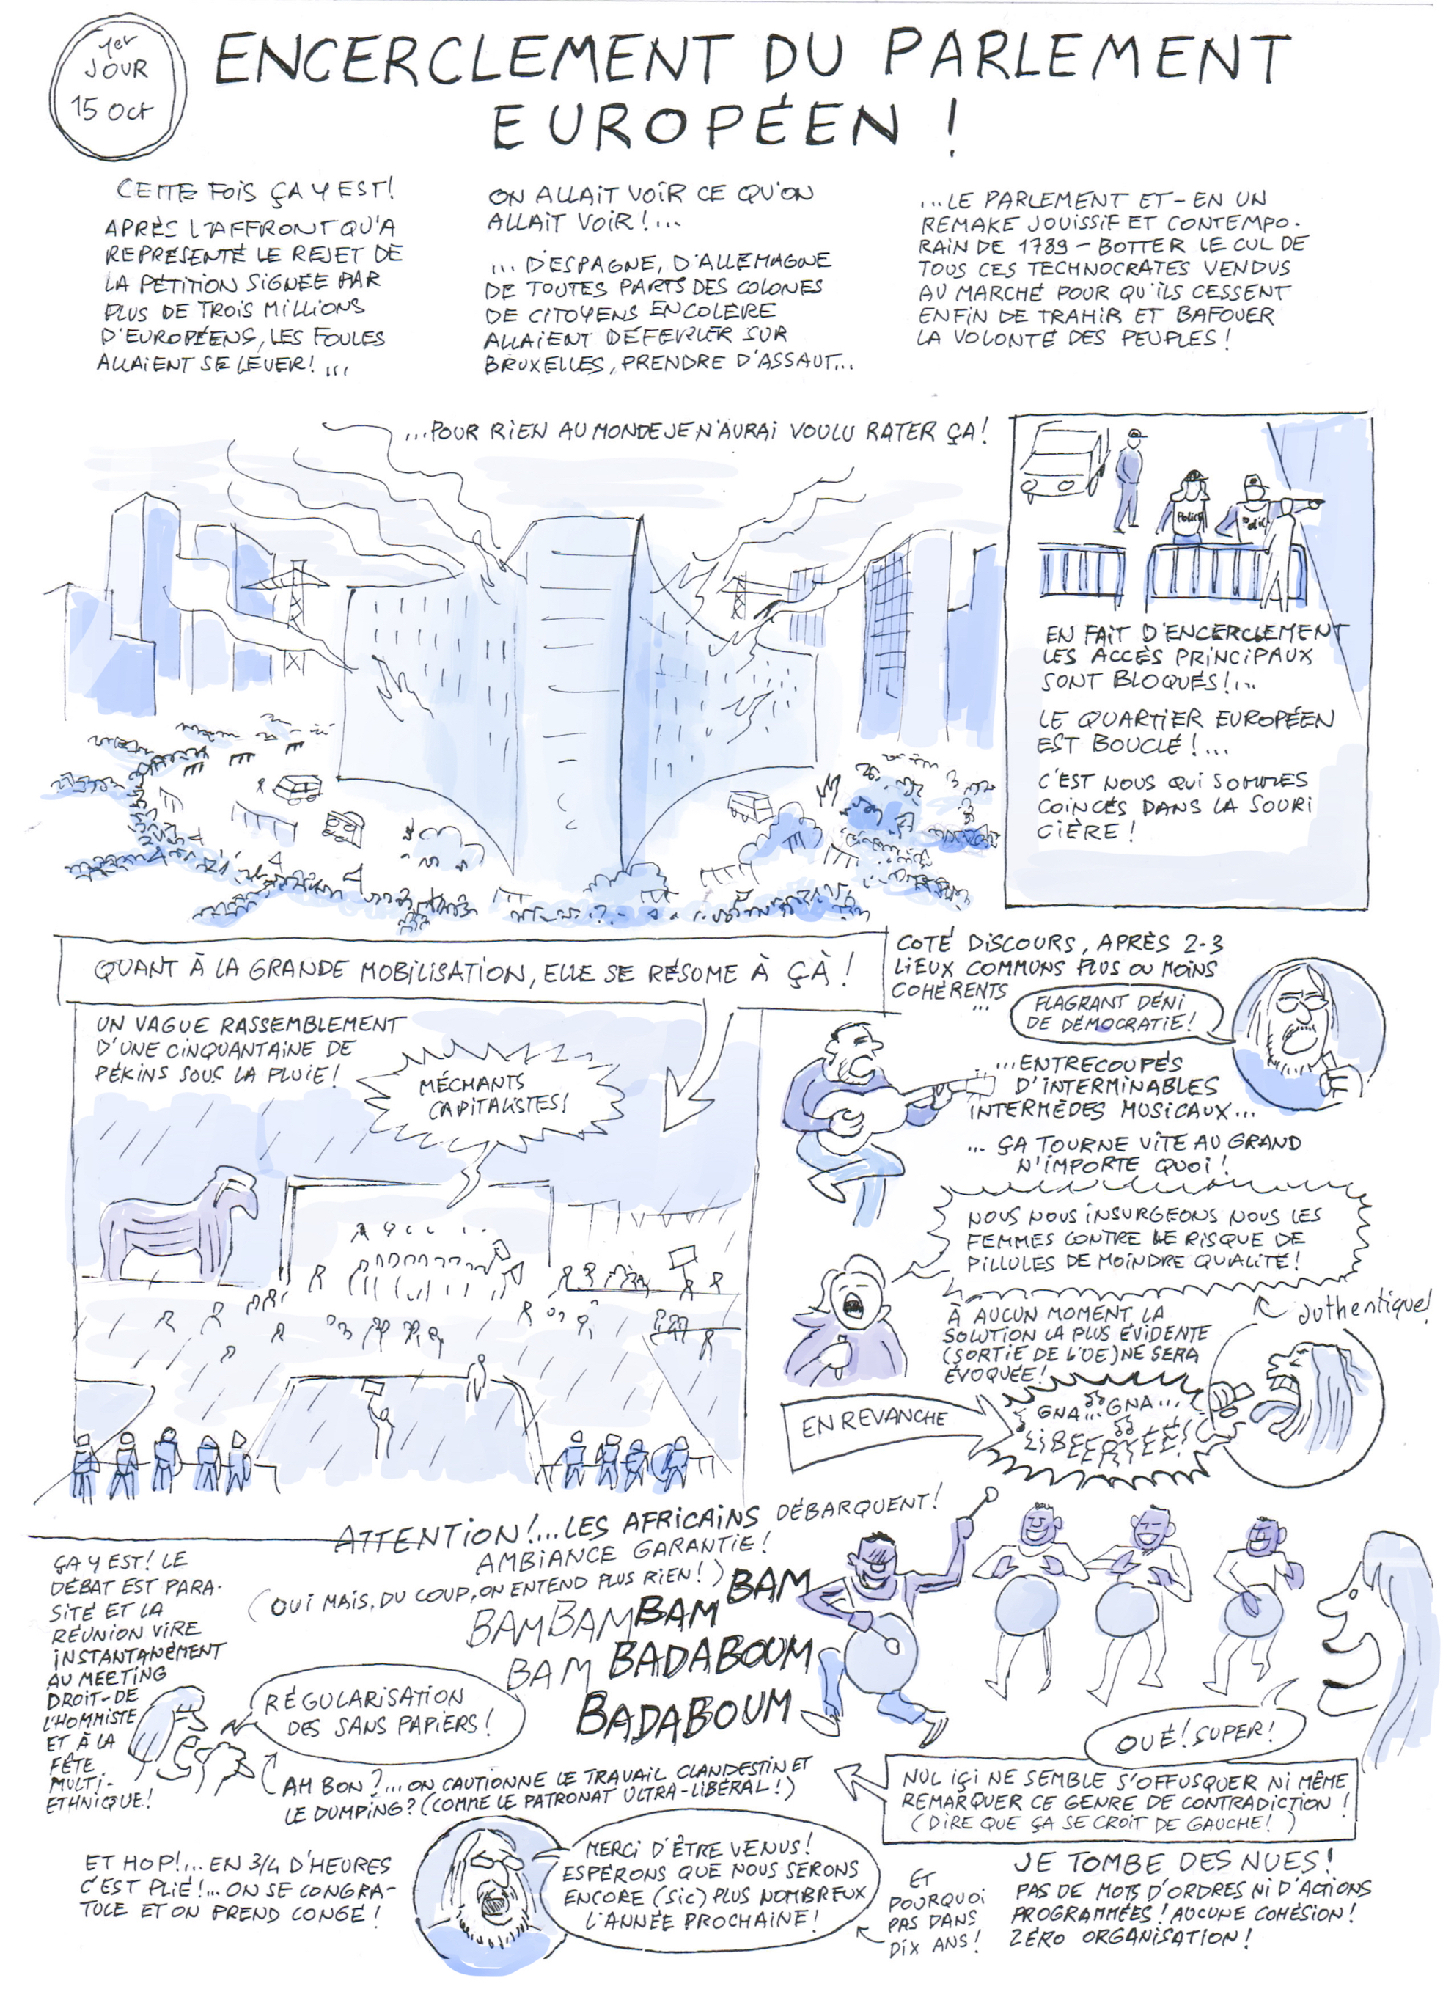 1er
JOUR
15 Oct
ENCERCLEMENT DU PARLEMENT
EUROPÉEN !
CETTE FOIS ÇA Y EST!
APRÈS L'AFFRONT QU'A
REPRÉSENTÉ LE REJET DE
LA PÉTITION SIGNÉE PAR
PLUS DE TROIS MILLIONS
D'EUROPÉENS, LES FOULES
ALLAIENT SE LEVER! ...
ON ALLAIT VOIR CE QU'ON
ALLAIT VOIR !...
... D'ESPAGNE, D'ALLEMAGNE
DE TOUTES PARTS DES COLONES
DE CITOYENS EN COLÈRE
ALLAIENT DÉFERLER SUR
BRUXELLES, PRENDRE D'ASSAUT...
...LE PARLEMENT ET - EN UN
REMAKE JOUISSIF ET CONTEMPO-
RAIN DE 1789 - BOTTER LE CUL DE
TOUS CES TECHNOCRATES VENDUS
AU MARCHÉ POUR QU'ILS CESSENT
ENFIN DE TRAHIR ET BAFOUER
LA VOLONTÉ DES PEUPLES !
...POUR RIEN AU MONDE JE N'AURAI VOULU RATER ÇA !
POLICE
POLIC
EN FAIT D'ENCERCLEMENT
LES ACCÈS PRINCIPAUX
SONT BLOQUÉS !...
LE QUARTIER EUROPÉEN
EST BOUCLÉ !...
C'EST NOUS QUI SOMMES
COINCÉS DANS LA SOURI
CIÈRE !
QUANT À LA GRANDE MOBILISATION, ELLE SE RÉSUME À ÇÀ !
UN VAGUE RASSEMBLEMENT
D'UNE CINQUANTAINE DE
PÉKINS SOUS LA PLUIE !
MÉCHANTS
CAPITALISTES!
COTÉ DISCOURS, APRÈS 2-3
LIEUX COMMUNS PLUS OU MOINS
COHÉRENTS
...
FLAGRANT DÉNI
DE DÉMOCRATIE!
...ENTRECOUPÉS
D'INTERMINABLES
INTERMÈDES MUSICAUX...
... ÇA TOURNE VITE AU GRAND
N'IMPORTE QUOI !
NOUS NOUS INSURGEONS NOUS LES
FEMMES CONTRE LE RISQUE DE
PILLULES DE MOINDRE QUALITÉ !
authentique!
À AUCUN MOMENT LA
SOLUTION LA PLUS ÉVIDENTE
(SORTIE DE L'OE) NE SERA
ÉVOQUÉE!
EN REVANCHE
GNA... GNA...
LIBEERTÉÉ!
ATTENTION!...LES AFRICAINS DÉBARQUENT!
AMBIANCE GARANTIE !
(OUI MAIS, DU COUP, ON ENTEND PLUS RIEN! )
BAM BAM BAM BAM
BAM BADABOUM
BADABOUM
ÇA Y EST! LE
DÉBAT EST PARA-
SITÉ ET LA
RÉUNION VIRE
INSTANTANÉMENT
AU MEETING
DROIT-DE
L'HOMMISTE
ET À LA
FÊTE
MULTI-
ETHNIQUE!
RÉGULARISATION
DES SANS PAPIERS !
AH BON ?... ON CAUTIONNE LE TRAVAIL CLANDESTIN ET
LE DUMPING? (COMME LE PATRONAT ULTRA-LIBÉRAL !)
OUÉ! SUPER!
NUL IÇI NE SEMBLE S'OFFUSQUER NI MÊME
REMARQUER CE GENRE DE CONTRADICTION !
(DIRE QUE ÇA SE CROIT DE GAUCHE! )
ET HOP!... EN 3/4 D'HEURES
C'EST PLIÉ !... ON SE CONGRA-
TULE ET ON PREND CONGÉ !
MERCI D'ÊTRE VENUS!
ESPÉRONS QUE NOUS SERONS
ENCORE (SIC) PLUS NOMBREUX
L'ANNÉE PROCHAINE !
ET
POURQUOI
PAS DANS
DIX ANS!
JE TOMBE DES NUES!
PAS DE MOTS D'ORDRES NI D'ACTIONS
PROGRAMMÉES ! AUCUNE COHÉSION!
ZÉRO ORGANISATION!